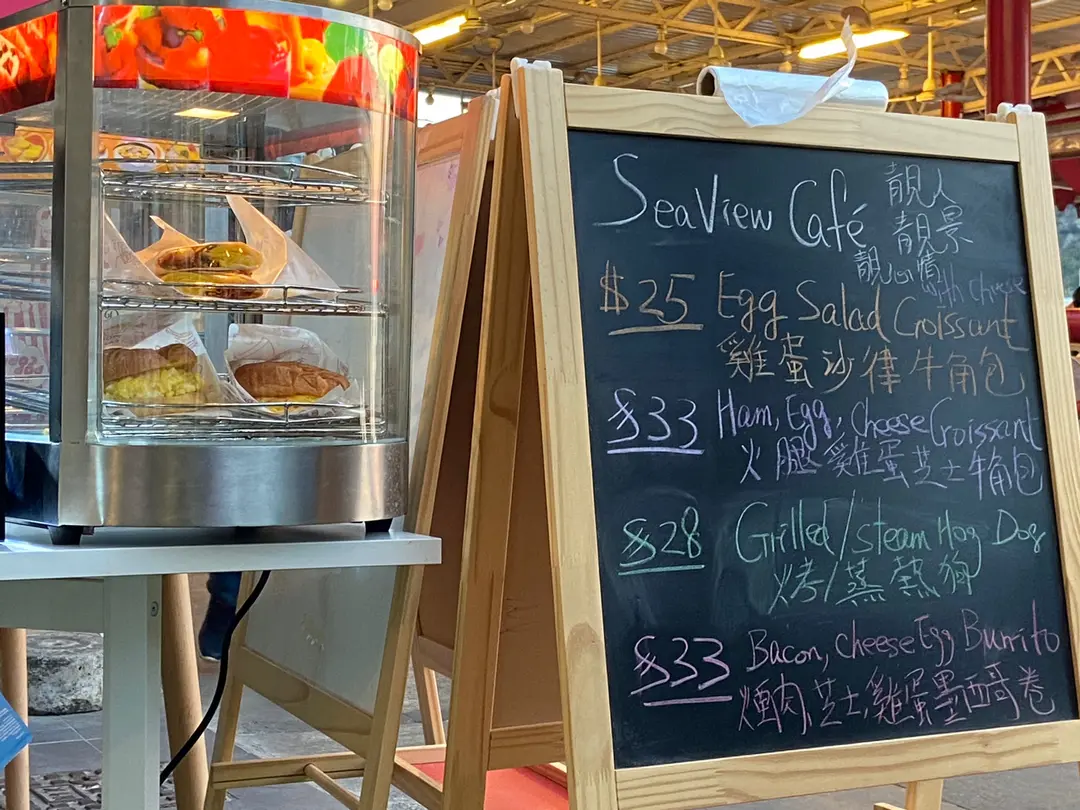 SeaView Café
靚人
靚景
靚心情
with cheese
$25 Egg Salad Croissant
雞蛋沙律牛角包
$33 Ham, Egg, Cheese Croissant
火腿雞蛋芝士牛角包
$28 Grilled/steam Hog Dog
烤/蒸熱狗
$33 Bacon, Cheese Egg Burrito
煙肉,芝士,雞蛋墨西哥卷